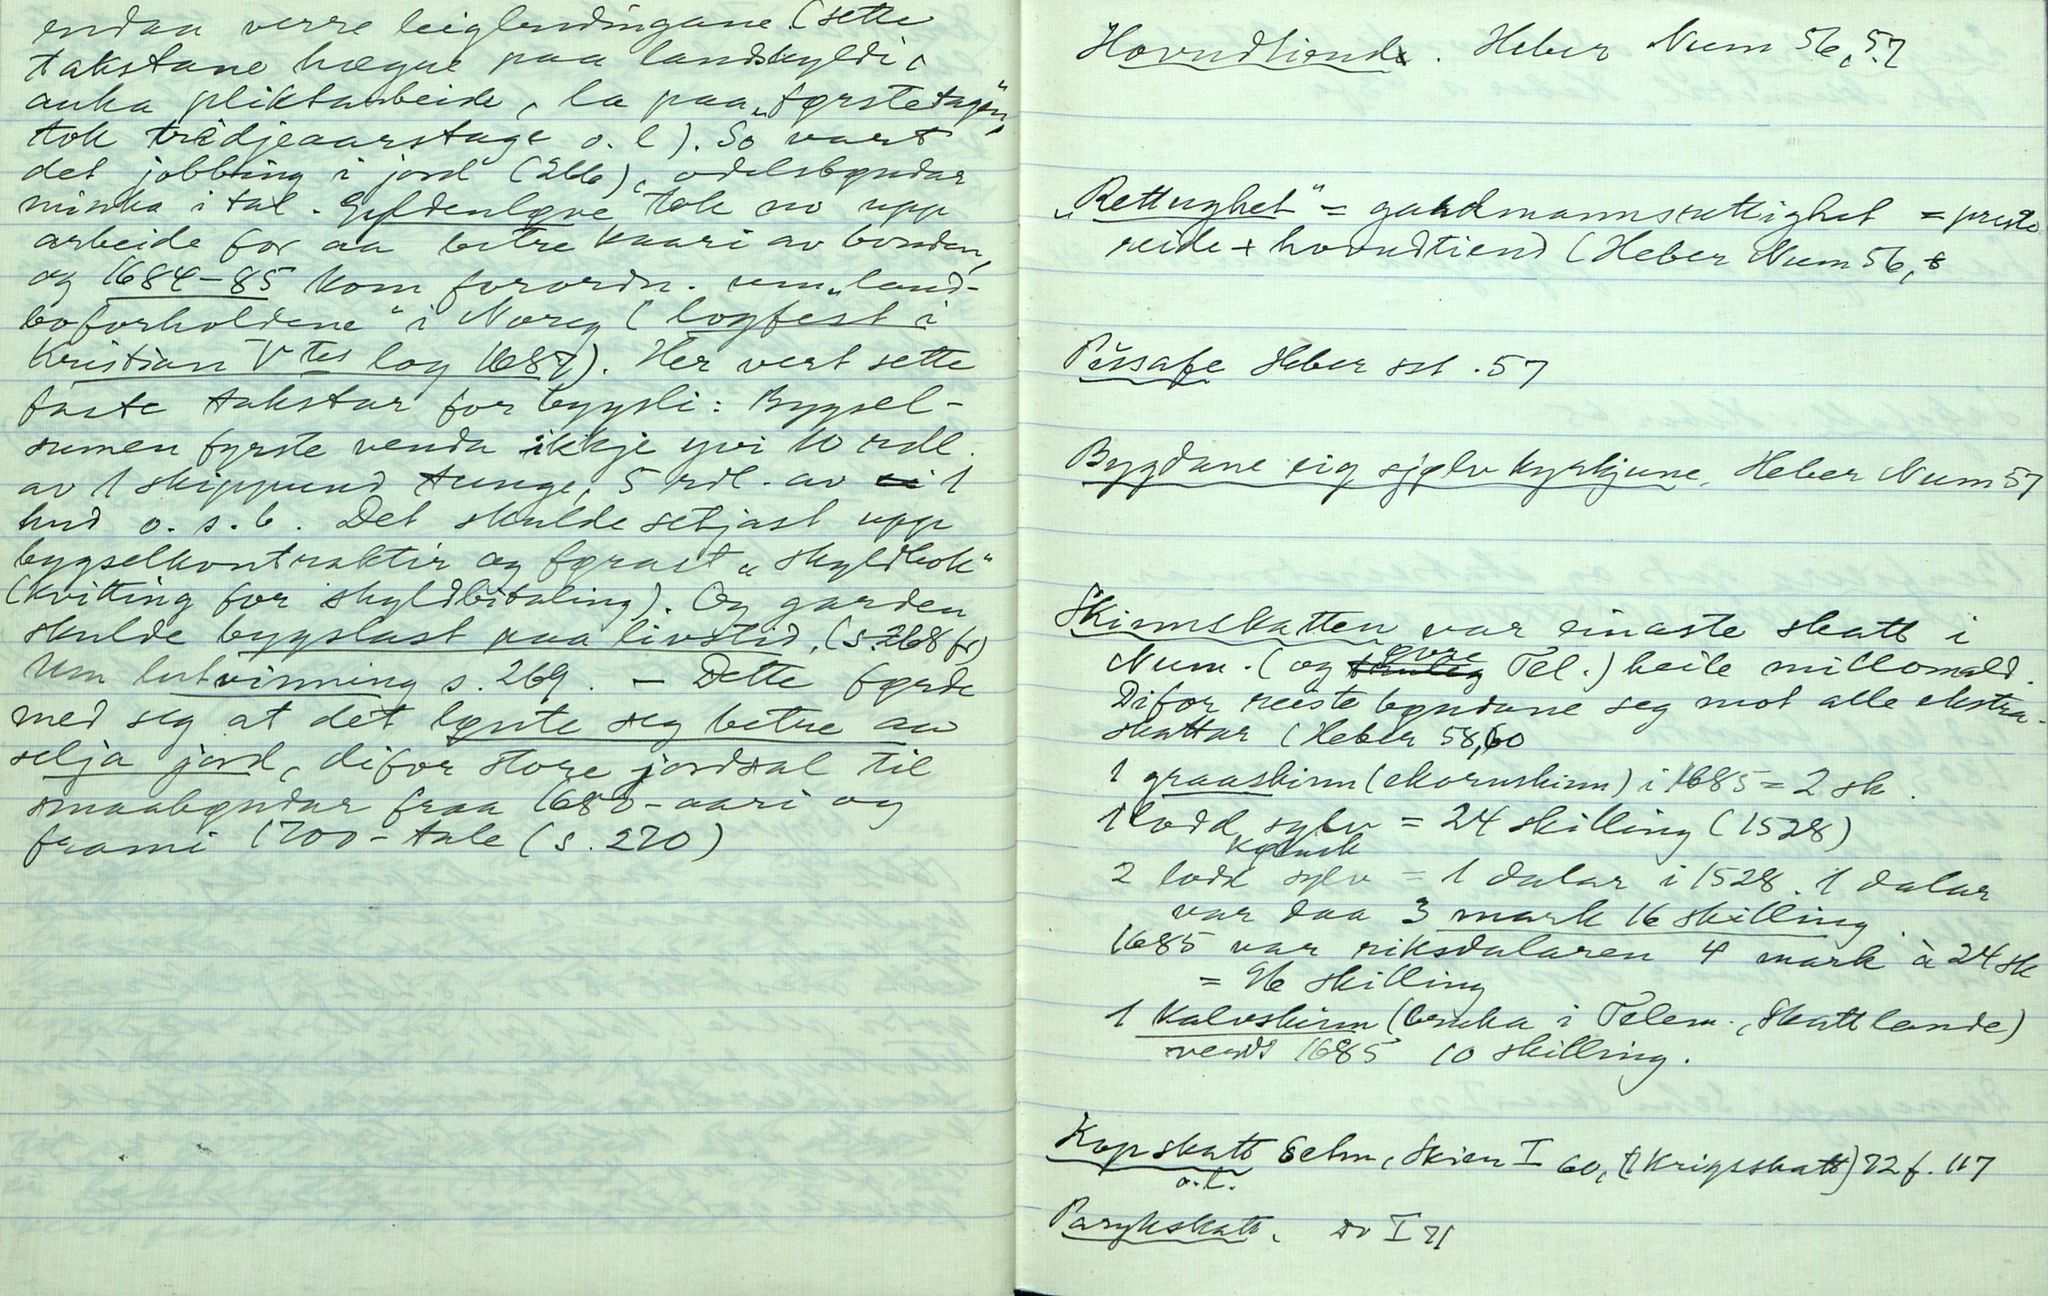 endaa verre leiglendingane (sette
takstane høgne paa landskyldi,
auka pliktarbeide, la paa „førstetagen",
tok tridjeaarstage o. l). So vart
det jobbing i jord (266), odelsbøndar
minka i tal. Gyldenløve tok no upp
arbeide for aa betre kaari av bonden,
og 1684-85 kom forordn. um „land-
boforholdene" i Noreg (logfest i
Kristian Vtes log 1687). Her vert sette
faste takstar for bygsli: Bygsel-
sumen fyrste venda ikkje yvi 10 rdl.
av 1 skippund tunge, 5 rdl. av 1
hud o. s. b. Det skulde setjast upp
bygselkontraktir og førast „skyldbok"
(kvitting for skyldbitaling). Og garden
skulde bygslast paa livstid. (s. 268 fr)
Um lutvinning s. 269. – Dette førde
med seg at det lønte seg betre aa
selja jord, difor store jordsal til
smaabøndar fraa 1680-aari og
frami 1700-tale (s. 270)
Hovudtiend. Heber Num 56, 57
„Rettughet" = gardmannsrettighet = presta
reide + hovudtiend (Heber Num 56,
Pussafe Heber sst. 57
Bygdane eig sjølv kyrkjune, Heber Num 57
Skinnskatten var einaste skatt i
Num. (og øvre Tel.) heile millomald.
Difor reiste bøndane seg mot alle ekstra-
skattar (Heber 58, 60
1 graaskinn (ekornskinn) i 1685 = 2 sk.
1 lodd sylv = 24 skilling (1528)
2 lodd kølnsk sylv = 1 dalar i 1528. 1 dalar
var daa 3 mark 16 skilling
1685 var riksdalaren 4 mark à 24 sk
= 96 skilling
1 kalvskinn (bruka i Telem., Skattlande)
verdt 1685 10 skilling.
Kopskatt o.l. Schn, Skien I 60, (Krigsskatt) 72 f. 117
Parykskatt. Do I 71